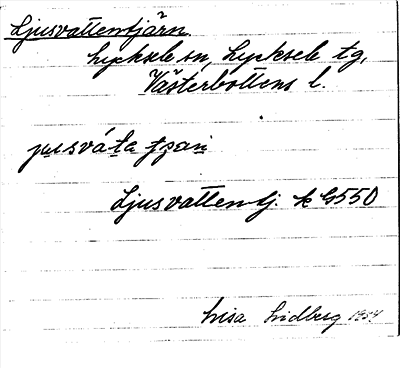 Ljusvattentjärn
Lycksele sn, Lycksele tg,
Västerbottens l.
Ljusvattentj. k G550
Lisa Lidberg 1934